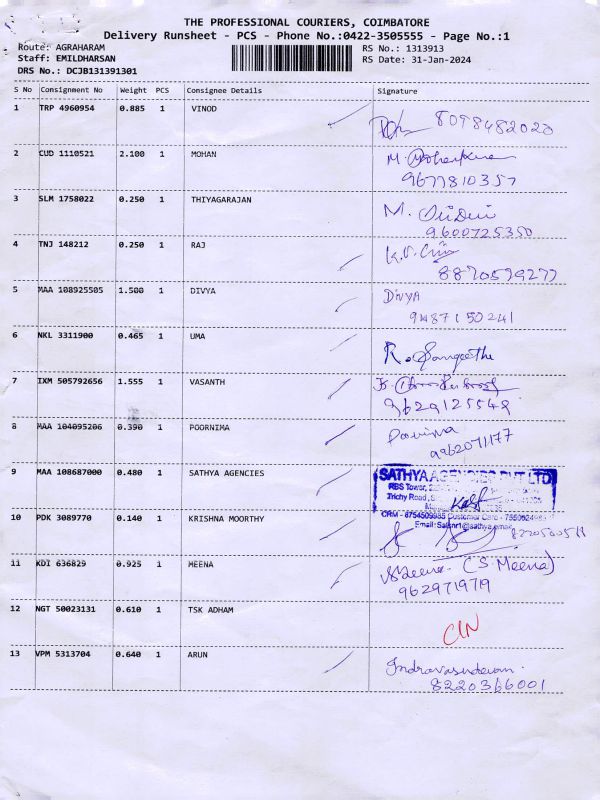 THE PROFESSIONAL COURIERS, COIMBATORE
Delivery Runsheet - PCS - Phone No.:0422-3505555 - Page No.:1
Route: AGRAHARAM
Staff: EMILDHARSAN
DRS No.: DCJB131391301
RS No.: 1313913
RS Date: 31-Jan-2024
S No Consignment No Weight PCS Consignee Details Signature
1 TRP 4960954 0.885 1 VINOD
8098482020
2 CUD 1110521 2.100 1 MOHAN
M.
9677810357
3 SLM 1758022 0.250 1 THIYAGARAJAN
M.
9600725350
4 TNJ 148212 0.250 1 RAJ
K.V.
5 MAA 108925505 1.500 1 DIVYA
DIVYA
9487150241
6 NKL 3311900 0.465 1 UMA
R. Sangeetha
7 IXM 505792656 1.555 1 VASANTH
9629125548
8 MAA 104095206 0.390 1 POORNIMA
9962071177
9 MAA 108687000 0.480 1 SATHYA AGENCIES
SATHYA AGENCIES PVT LTD
RBS Tower,
Trichy Road,
CRM - 8754509985 Customer Care -
Email:
10 PDK 3089770 0.140 1 KRISHNA MOORTHY
11 KDI 636829 0.925 1 MEENA
(S. Meena)
962971979
12 NGT 50023131 0.610 1 TSK ADHAM
CIN
13 VPM 5313704 0.640 1 ARUN
Indravasudevan
8220366001